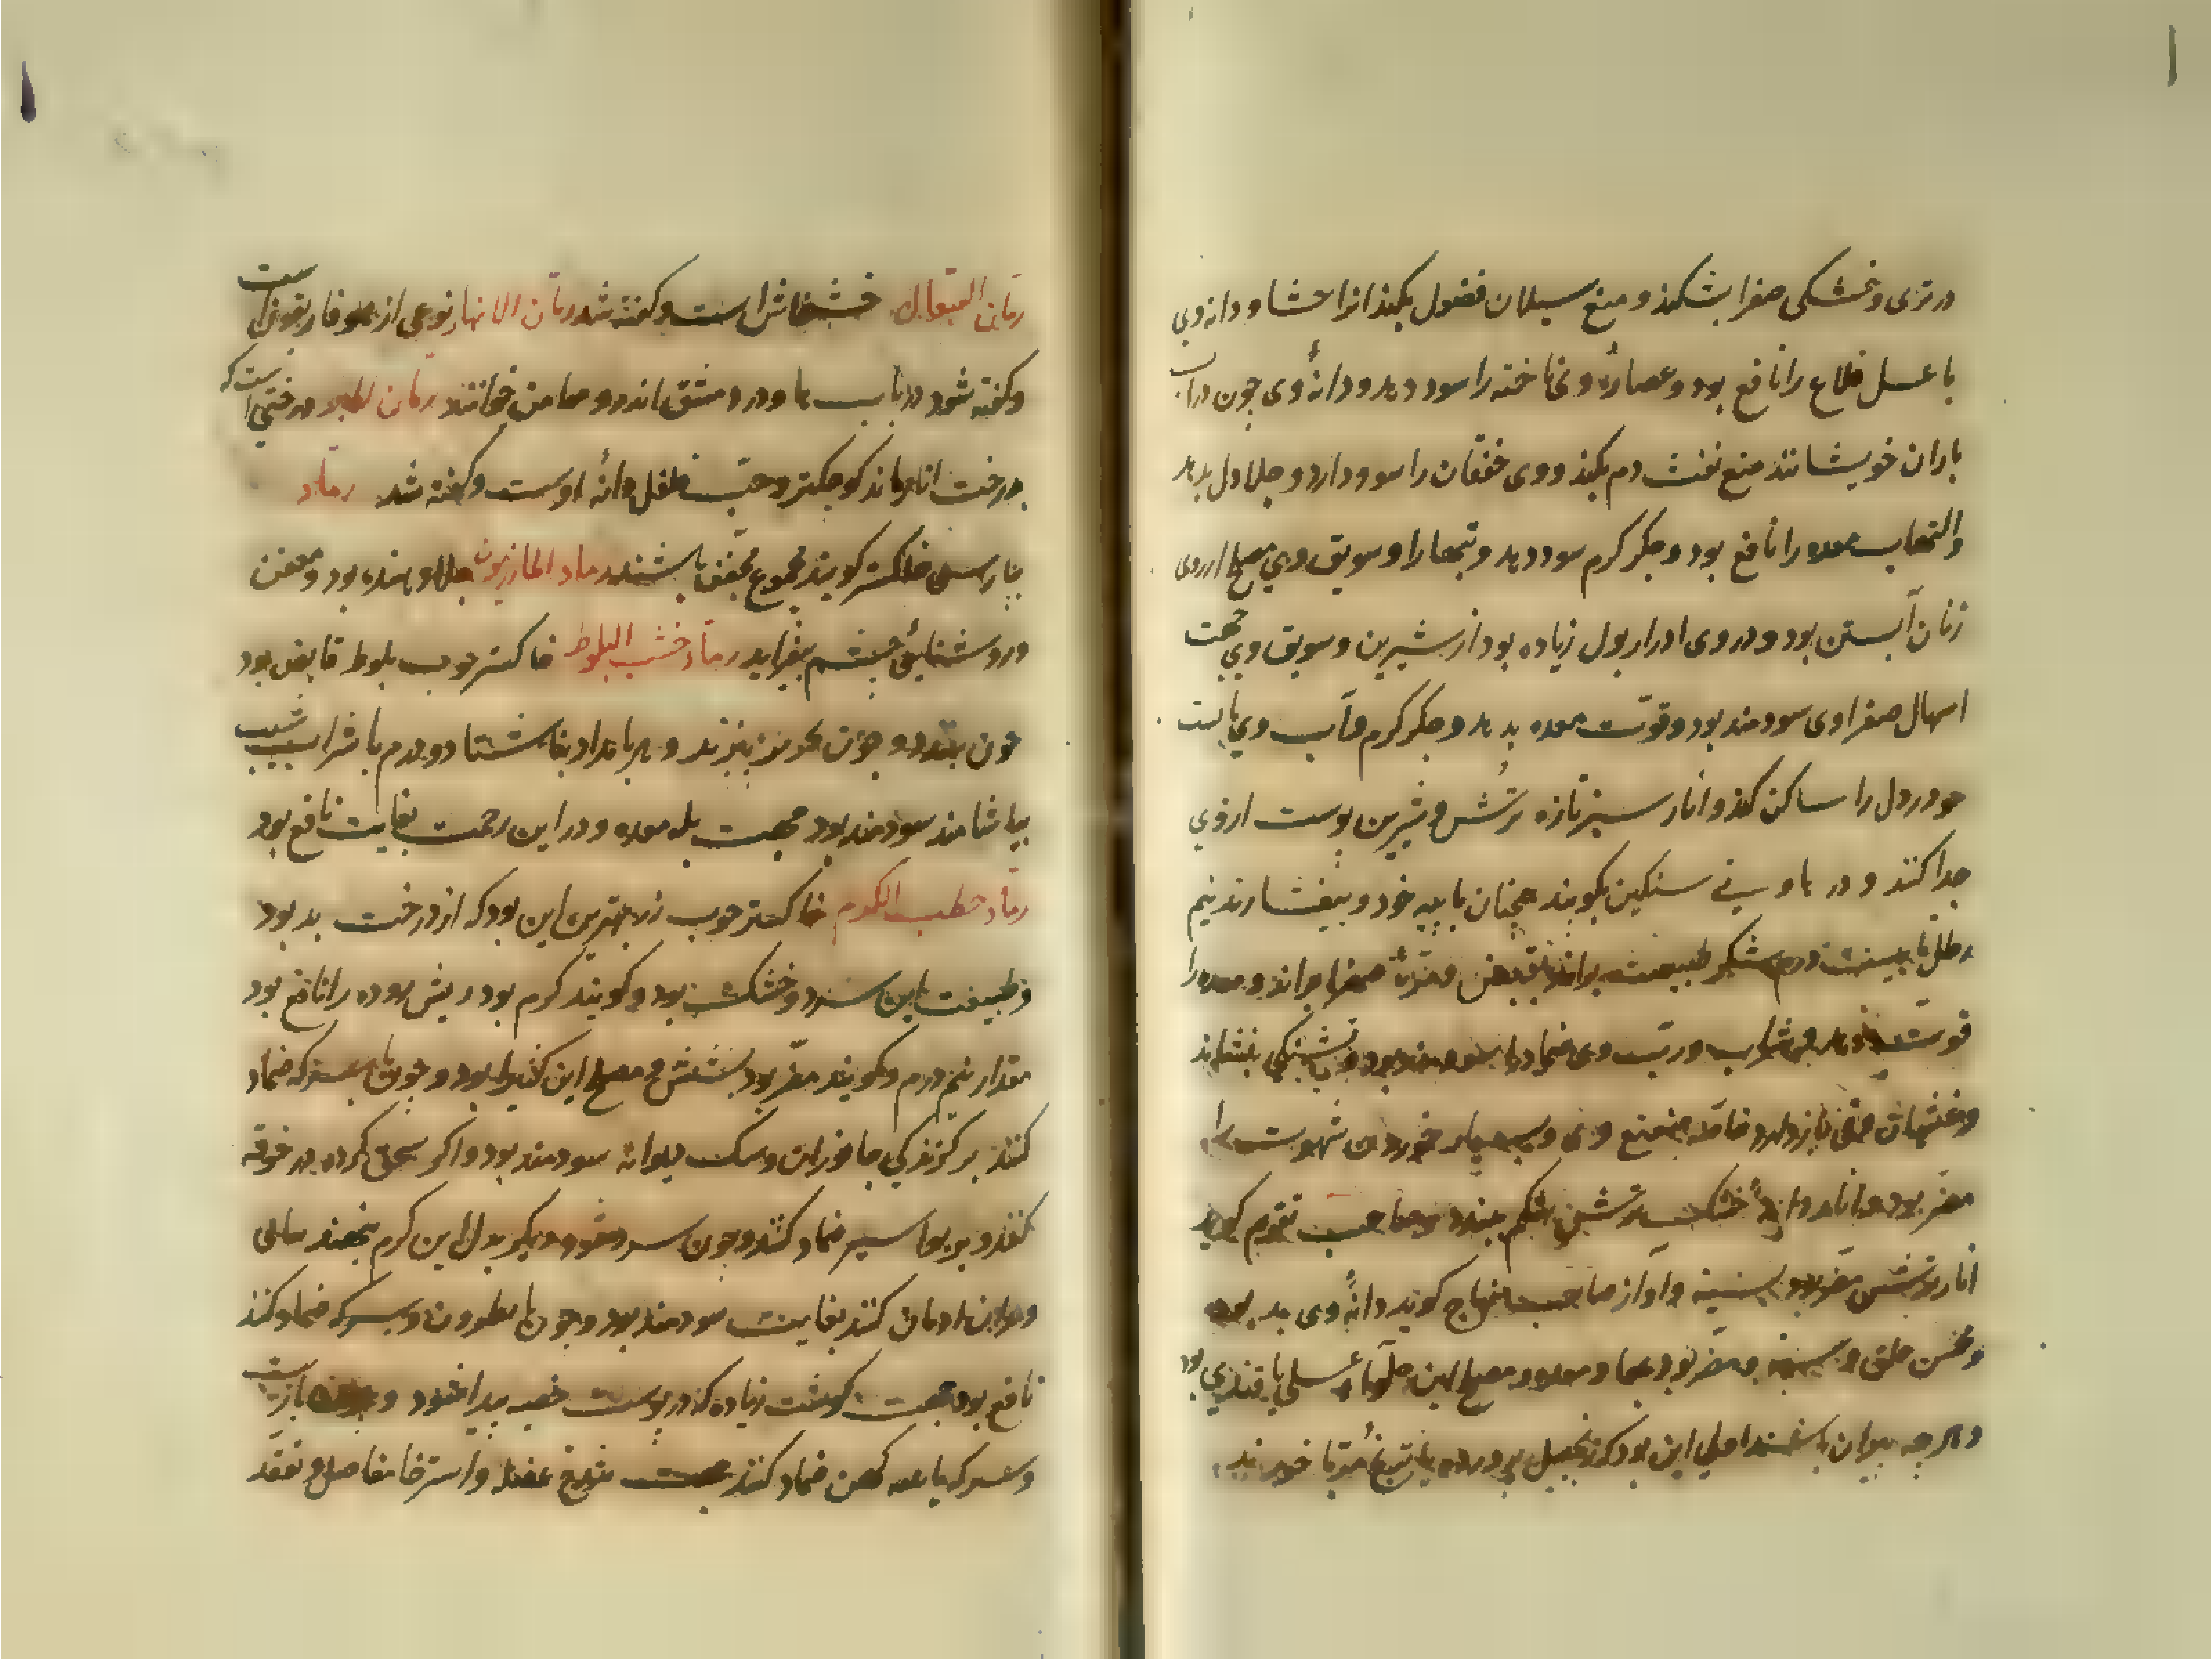 در تری و خشکی صفرا بشکند و منع سیلان فضول بکند از احشا و دانه وی
با عسل قلاع را نافع بود و عصارهٔ وی ناخنه را سود دهد و دانهٔ وی چون در آب
باران خویسانند منع نفث دم بکند و وی خفقان را سود دارد و جلا دل بدهد
و التهاب معده را نافع بود و جگر گرم سود دهد و تبها را و سویق وی مصلح ارزوی
زنان آبستن بود و در وی ادرار بول زیاده بود از شیرین و سویق وی جهت
اسهال صفراوی سودمند بود و قوت معده بدهد و جگر گرم و آب وی
درد دل را ساکن کند و انار سبز تازه ترش و شیرین پوست از وی
جدا کنند و در هاونی سنگین بکوبند همچنان با پیه خود و بیفشارند نیم
رطل با بیست درم شکر طبیعت براند و مرهٔ صفرا براند و معده را
قوت دهد و شراب و رب وی خمار را سودمند بود و تشنگی بنشاند
و غثیان و قی باز دارد خاصه منعنع وی و بسیار خوردن شهوت را
مضر بود و انار دانهٔ خشک ترش شکم ببندد و صاحب تقویم گوید
انار ترش مضر بود بسینه و آواز صاحب منهاج گوید دانهٔ وی بد بود
و مخشن حلق و سینه و مضر بود بمعا و معده و مصلح این حلوا عسلی یا قندی بود
و هرچه بیران باشند اصلح این بود که زنجبیل پرورده یا مربا خورند
رمان السعال خشخاش است و گفته شد رمان الانهار نوعی از هوفاریقون است
و گفته شود در باب ها و در دمشق اندروصامن خوانند رمان البر درختی است که
بدرخت انار ماند کوچکتر و حب فلفل دانهٔ اوست و گفته شد رماد
بپارسی خاکستر گویند مجموع مجفف باشند رماد المازریون جلا دهنده بود و معفن
و روشنائی چشم بیفزاید رماد خشب البلوط خاکستر چوب بلوط قابض بود
خون ببندد و چون بپزند و هر بامداد بناشتا دو درم با شراب سیب
بیاشامند سودمند بود جهت بله معده و در این زحمت بغایت نافع بود
رماد حطب الکرم خاکستر چوب رز بهترین این بود که از درخت بد بود
و طبیعت این سرد و خشک بود و گویند گرم بود ریش روده را نافع بود
مقدار نیم درم و گویند مضر بود بشش و مصلح این کثیرا بود و چون با سرکه ضماد
کنند بر گزندگی جانوران و سگ دیوانه سودمند بود و اگر سحق کرده در خرقه
کنند و بر بواسیر ضماد کنند و چون سرد شود دیگر بدل این گرم بنهند
و بر این ادمان کنند بغایت سودمند بود و چون با نطرون و سرکه ضماد کنند
نافع بود جهت گوشت زیاده که در پوست خصیه پیدا شود و چون با زیت
و سرکه یا پیه کهن ضماد کنند جهت شدخ عضل و استرخا مفاصل و تعقد